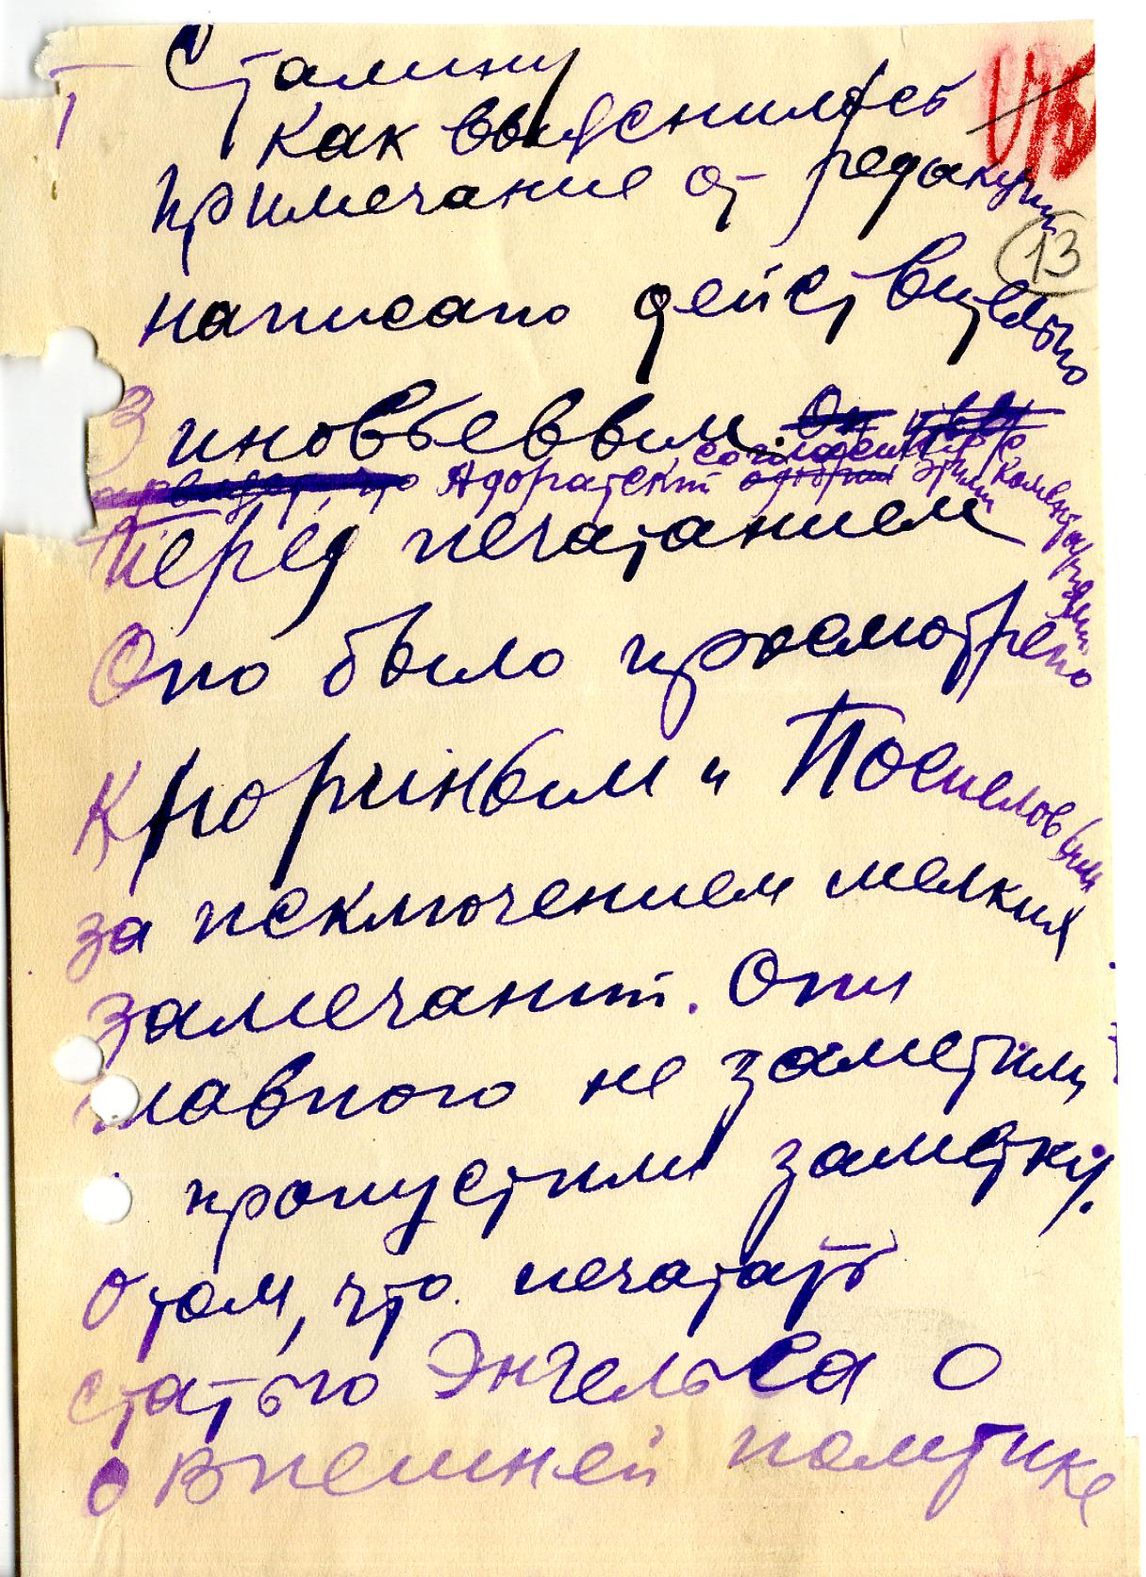 Т Сталину
175
Как выяснилось
примечание от редакции
13
написано действительно
Зиновьевым. Он
что Адоратский одобрил этим коментарием
согласен
Перед печатанием
Оно было просмотрено
Кнориным и Поспеловым
за исключением мелких
замечаний. Они
главного не заметили
пропустили заметку.
О том, что печатать
статью Энгельса о
о внешней политике